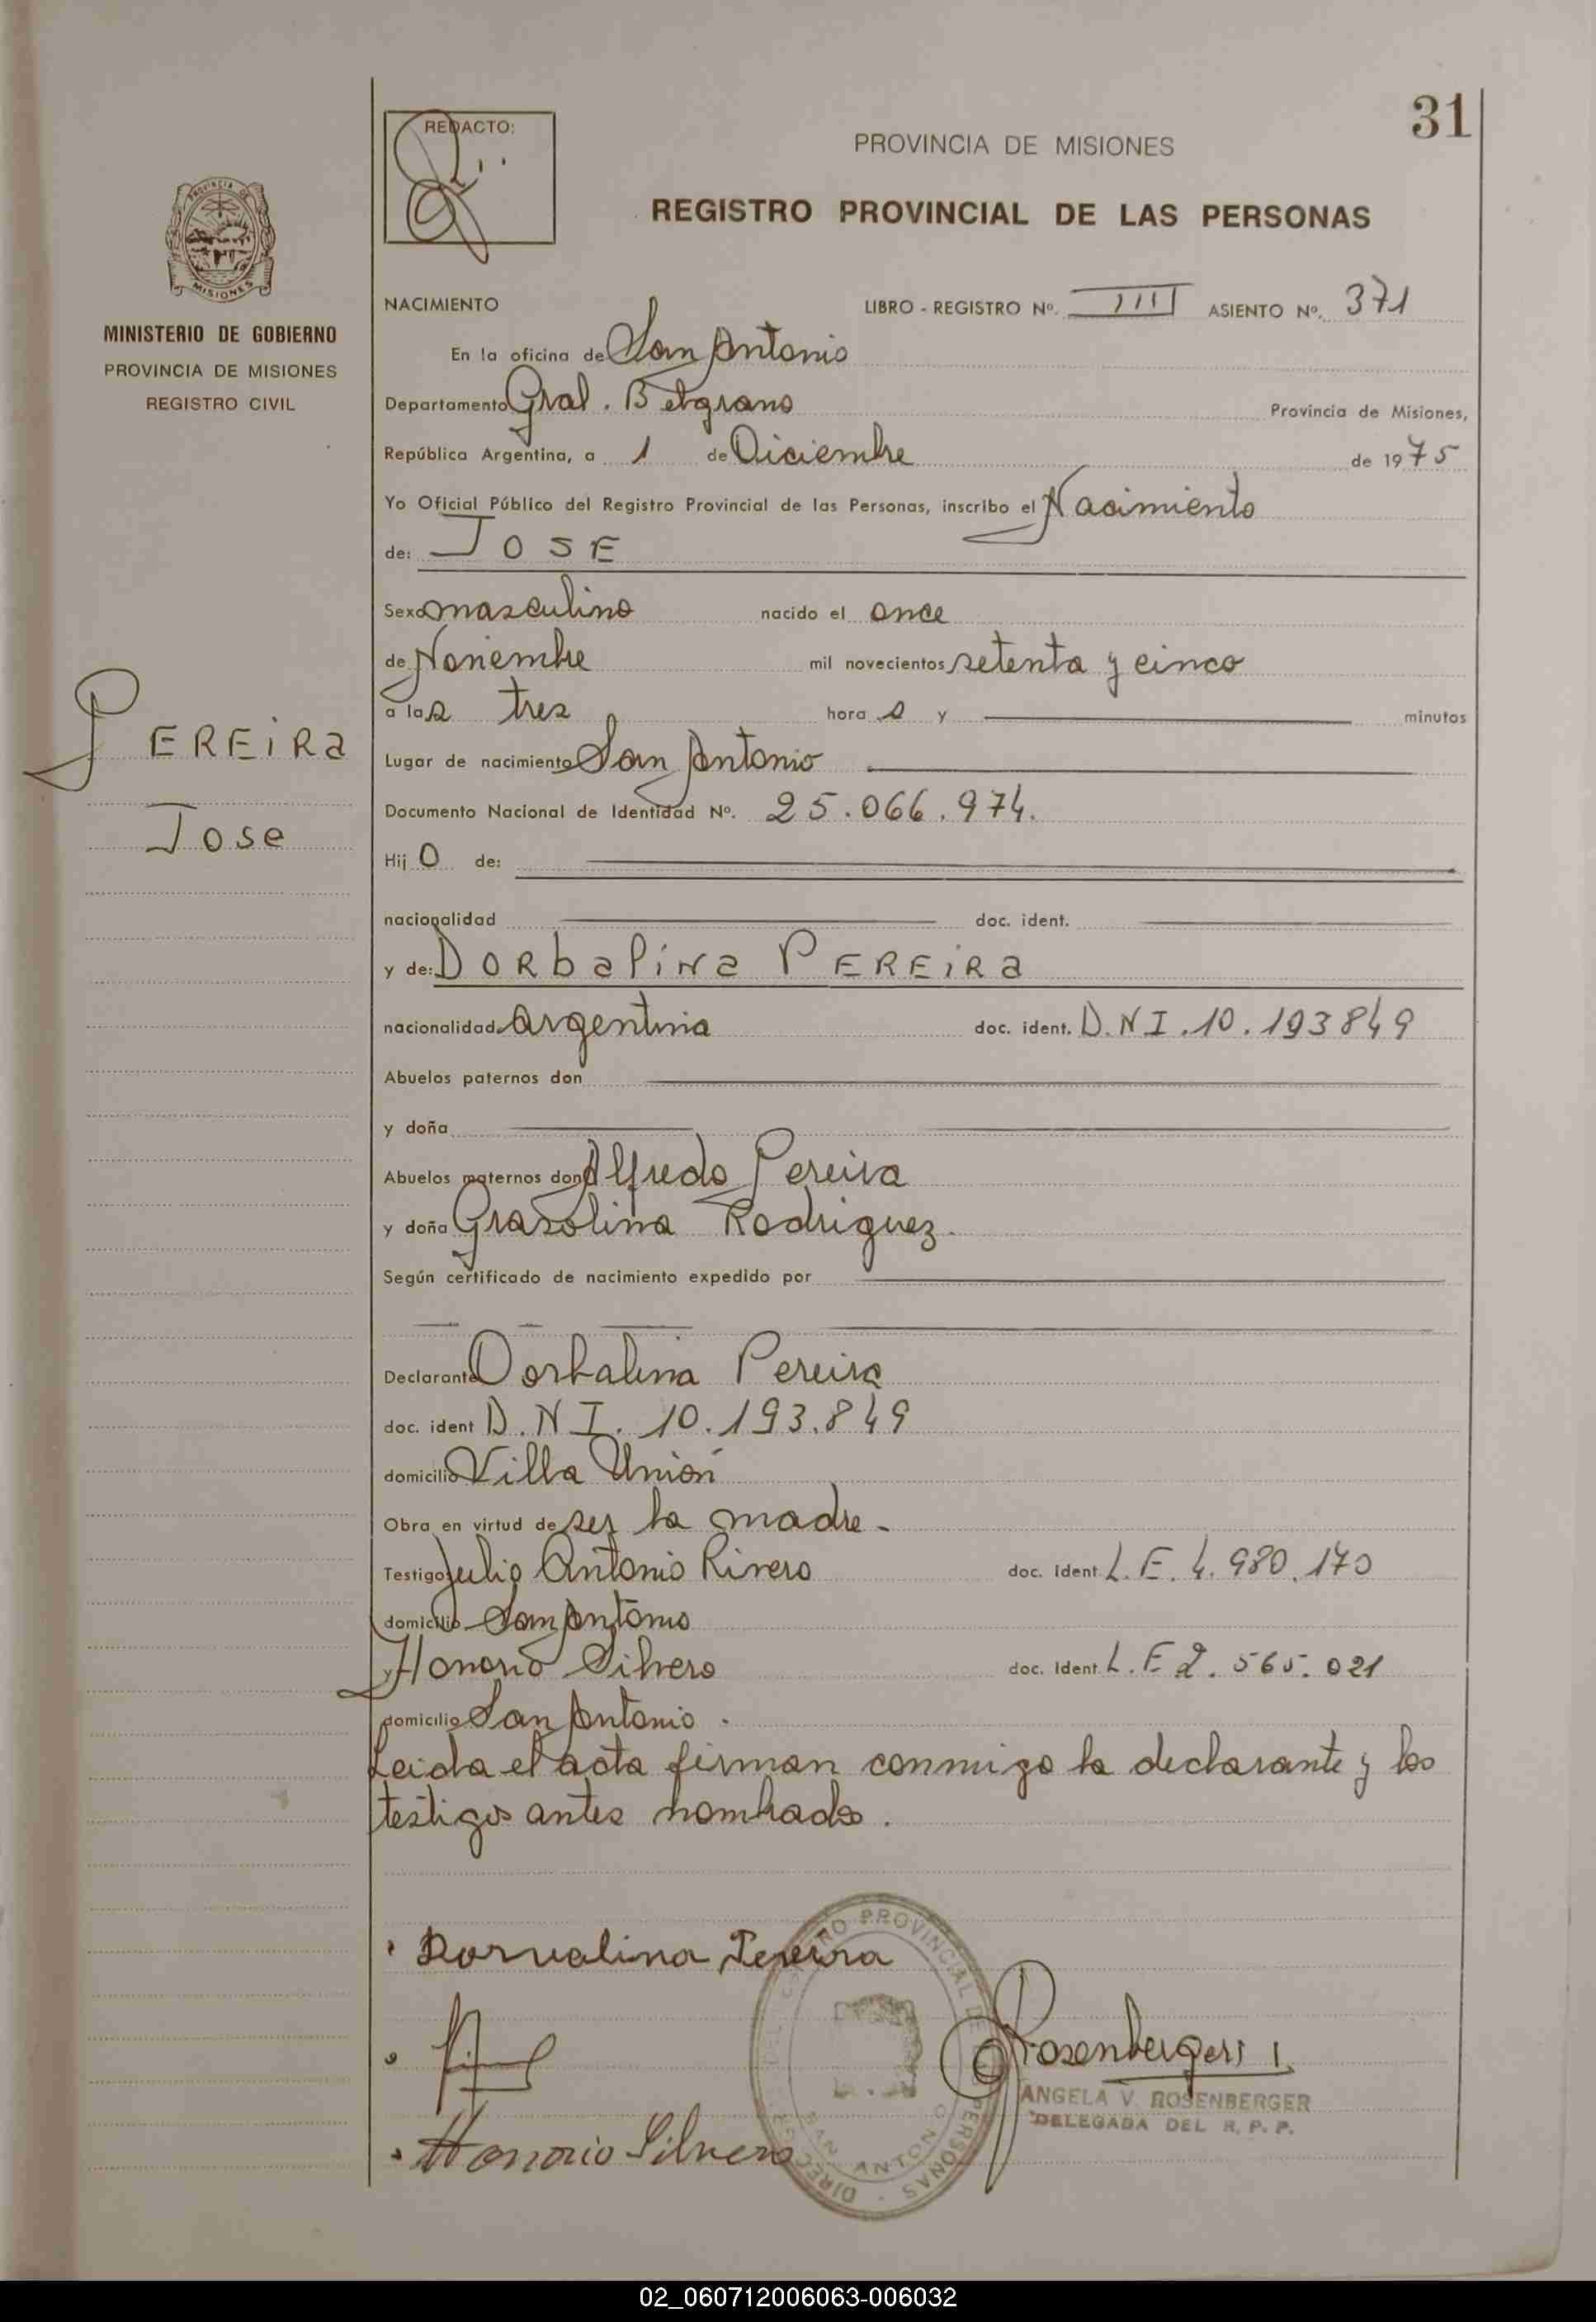 31
REDACTO:
PROVINCIA DE MISIONES
REGISTRO PROVINCIAL DE LAS PERSONAS
PROVINCIA DE
MISIONES
MINISTERIO DE GOBIERNO
PROVINCIA DE MISIONES
REGISTRO CIVIL
PEREIRA
Jose
NACIMIENTO LIBRO - REGISTRO Nº. III ASIENTO Nº. 371
En la oficina de San Antonio
Departamento Gral. Belgrano Provincia de Misiones,
República Argentina, a 1 de Diciembre de 1975
Yo Oficial Público del Registro Provincial de las Personas, inscribo el Nacimiento
de: JOSE
Sexo masculino nacido el once
de Noviembre mil novecientos setenta y cinco
a las tres hora s y minutos
Lugar de nacimiento San Antonio
Documento Nacional de Identidad Nº. 25.066.974.
Hij O de:
nacionalidad doc. ident.
y de: DORbaliNa PEREIRa
nacionalidad argentina doc. ident. D.N I.10.193849
Abuelos paternos don
y doña
Abuelos maternos don Alfredo Pereira
y doña Grasolina Rodriguez.
Según certificado de nacimiento expedido por
Declarante Dorbalina Pereira
doc. ident D.N I. 10.193.849
domicilio Villa Unión
Obra en virtud de ser la madre -
Testigo Julio Antonio Rivero doc. Ident L.E. 4.980.170
domicilio San Antonio
y Honorio Silvero doc. Ident L.E 2.565.021
domicilio San Antonio.
Leida el acta firman conmigo la declarante y los
testigos antes nombrados.
Dorvalina Pereira
Rosenberger
ANGELA V. ROSENBERGER
DELEGADA DEL R. P. P.
Honorio Silvero
DIRECCION DEL REGISTRO PROVINCIAL DE LAS PERSONAS
SAN ANTONIO
02_060712006063-006032